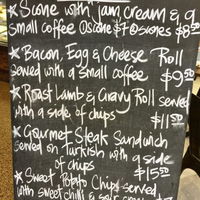 ★Scone with Jam cream & a
small coffee $8.50
★Bacon, Egg & Cheese Roll
served with a small coffee
$9.50
★Roast Lamb & Gravy Roll served
with a side of chips
$11.50
★Gourmet Steak Sandwich
served on turkish with a side
of chips
$15.50
★Sweet Potato Chips served
with sweet chilli & sour cream